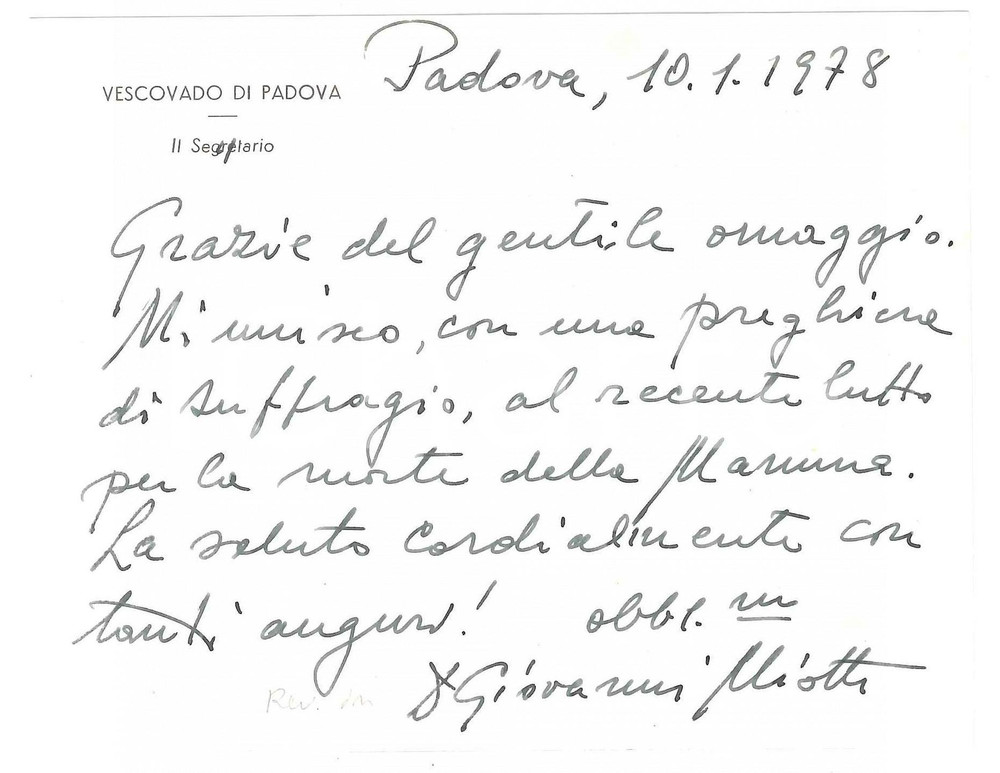 Padova, 10.1.1978
VESCOVADO DI PADOVA
Il Segretario
Grazie del gentile omaggio.
Mi unisco, con una preghiera
di suffragio, al recente lutto
per la morte della Mamma.
La saluto cordialmente con
tanti auguri! obbl. mo
Giovanni Miotti
Rev.